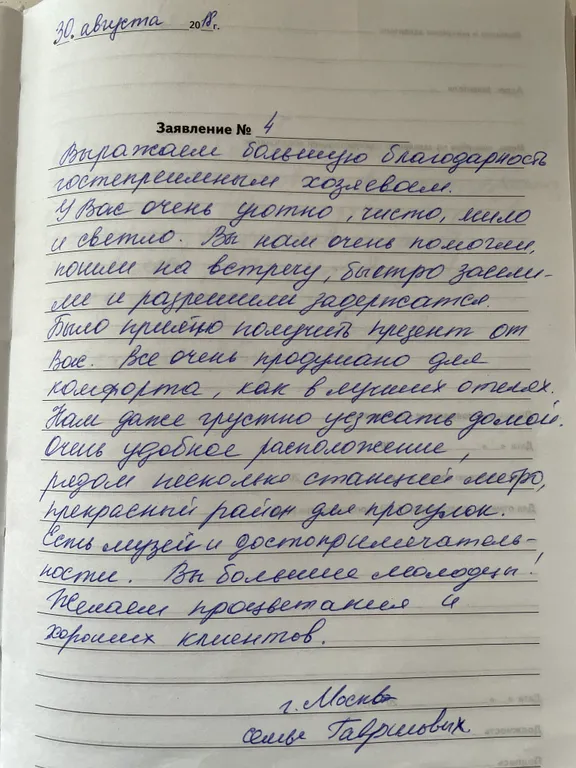 30. августа 2018 г.
Заявление № 4
Выражаем большую благодарность
гостеприимным хозяевам.
У Вас очень уютно, чисто, мило
и светло. Вы нам очень помогли,
пошли на встречу, быстро засели-
ли и разрешили задержатся.
Было приятно получить презент от
Вас. Все очень продумано для
комфорта, как в лучших отелях.
Нам даже грустно уезжать домой.
Очень удобное расположение,
рядом несколько станций метро,
прекрасный район для прогулок.
Есть музеи и достопримечатель-
ности. Вы большие молодцы!
Желаем процветания и
хороших клиентов.
г. Москва
семья Гавриловых.